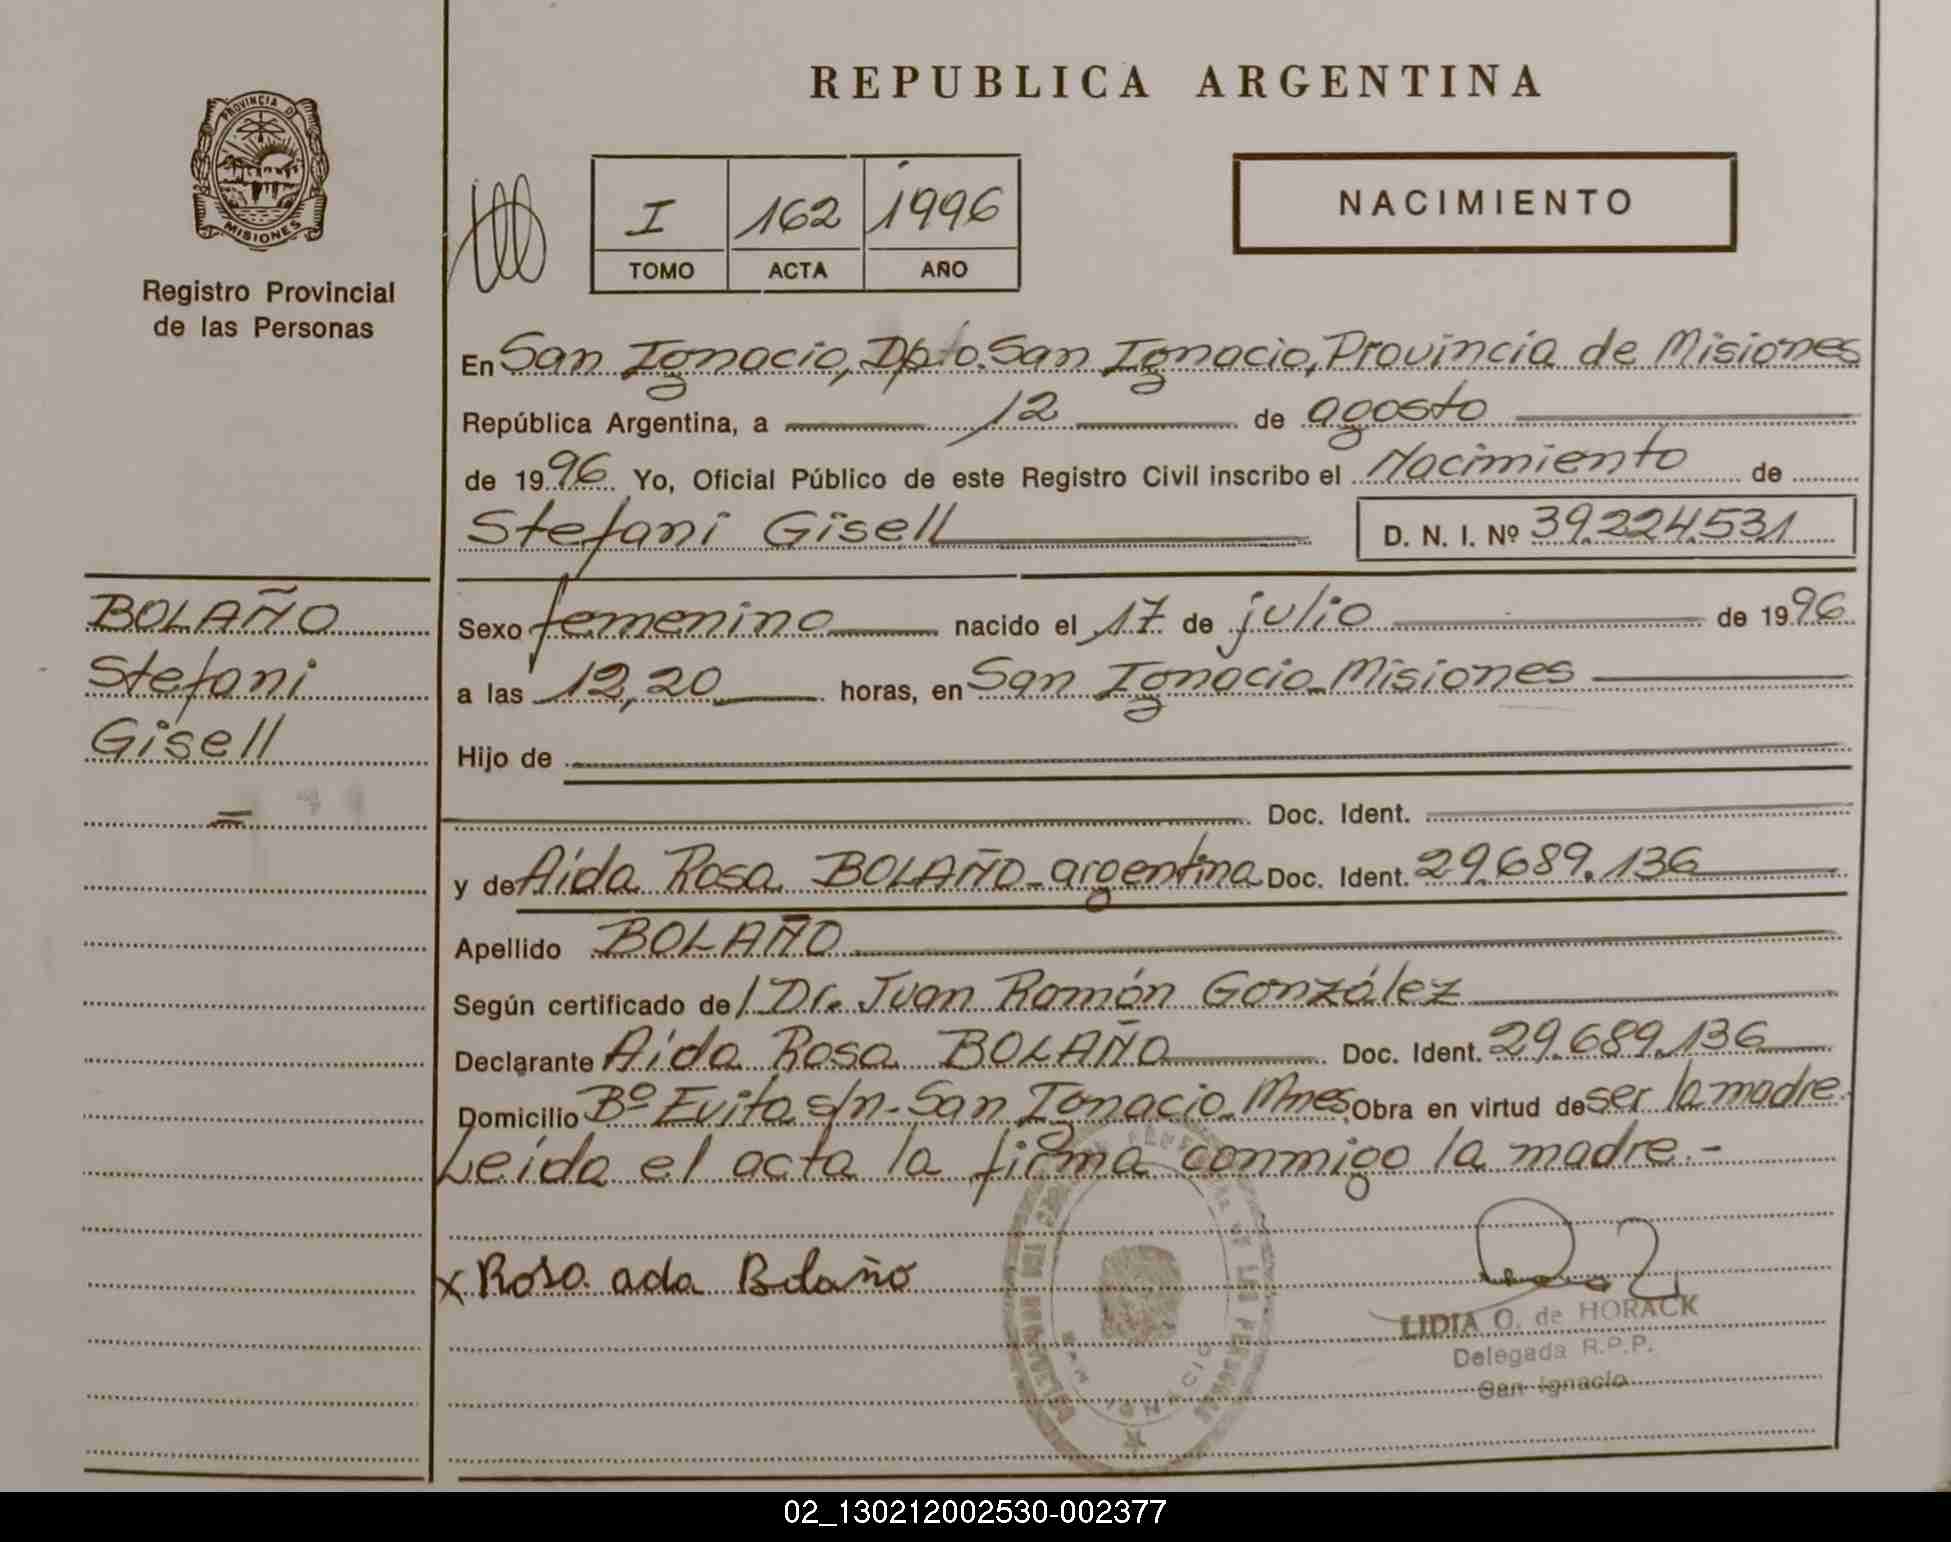 REPUBLICA ARGENTINA
PROVINCIA D
MISIONES
Registro Provincial
de las Personas
I 162 1996
TOMO ACTA AÑO
NACIMIENTO
En San Ignacio, Dpto. San Ignacio, Provincia de Misiones
República Argentina, a 12 de agosto
de 1996 Yo, Oficial Público de este Registro Civil inscribo el Nacimiento de
Stefani Gisell D. N. I. Nº 39.224.531
BOLAÑO
Stefani
Gisell
Sexo femenino nacido el 17 de julio de 1996
a las 12,20 horas, en San Ignacio Misiones
Hijo de
Doc. Ident.
y de Aída Rosa BOLAÑO-argentina Doc. Ident. 29.689.136
Apellido BOLAÑO
Según certificado de / Dr. Juan Ramón González
Declarante Aída Rosa BOLAÑO Doc. Ident. 29.689.136
Domicilio Bº Evita s/n-San Ignacio Mnes Obra en virtud de ser la madre.
Leída el acta la firma conmigo la madre.-
x Rosa ada Bolaño
LIDIA O. de HORACK
Delegada R.P.P.
San Ignacio
02_130212002530-002377